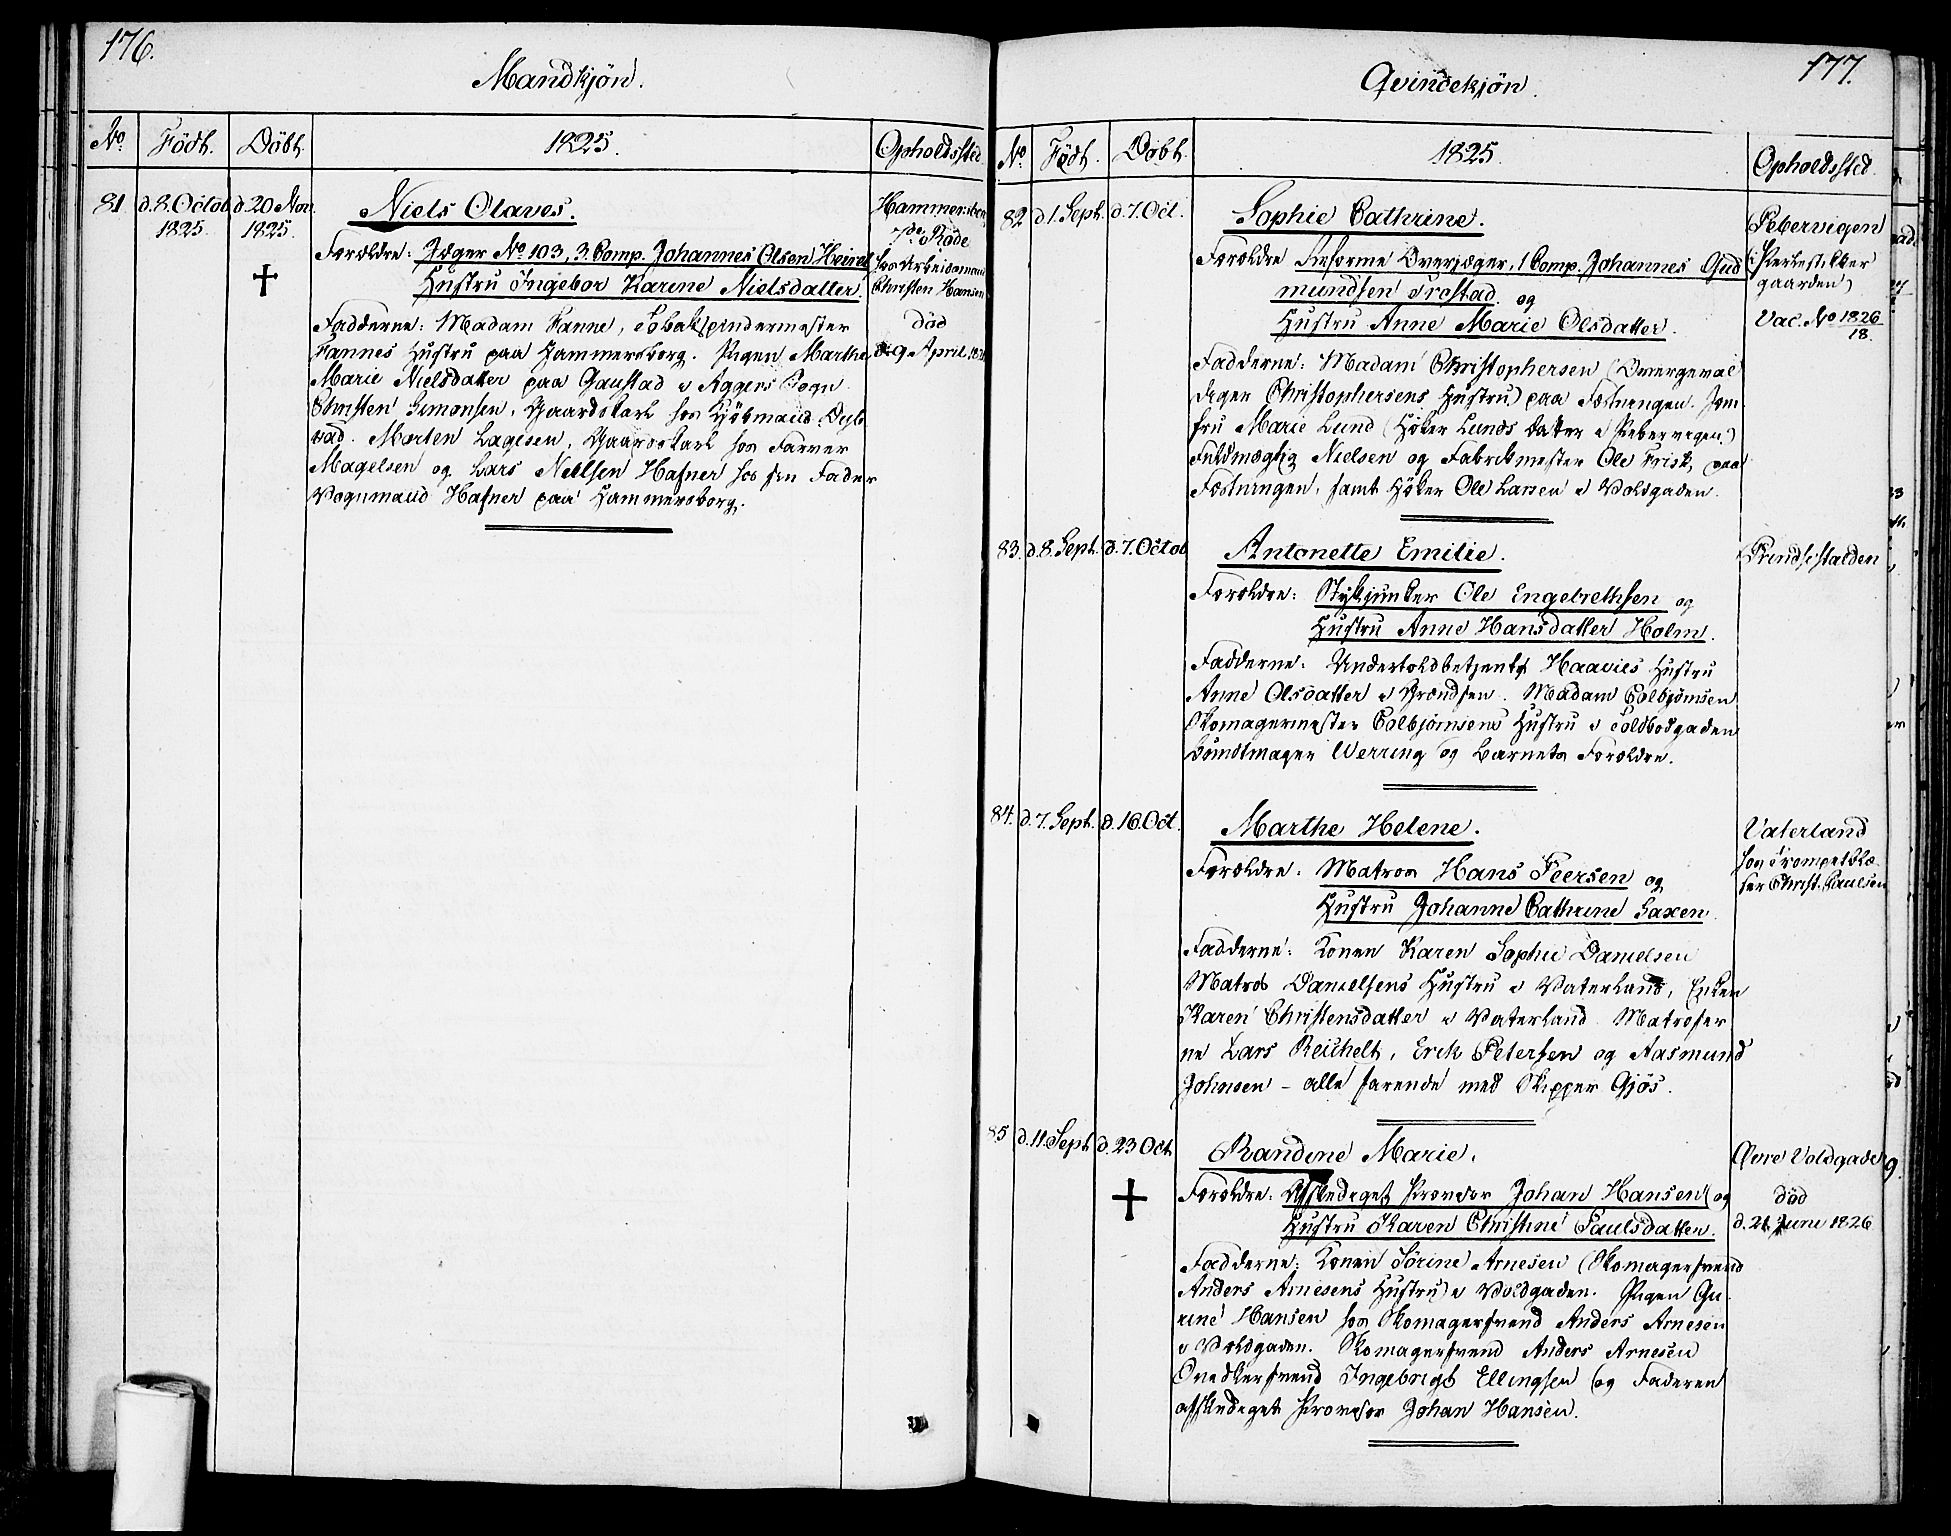 176.
Mandkjön.
No. Födt. Döbt. 1825. Opholdssted.
81 d. 8. Octob. 1825. d. 20 Nov. 1825. Niels Olaves.
Forældre: Jæger No 103, 3. Comp. Johannes Olsen
Hustru Ingebor Karine Nielsdatter.
Fadderne: Madam Fanne, Tobakspindermester
Fannes Hustru paa Hammersborg. Pigen Marthe
Marie Nielsdatter paa Gaustad i Aggers Sogn
Christen Simonsen, Gaardskarl hos Kjöbmand
Morten Lagesen, Gaardskarl hos Farver
Magelsen og Lars Nielsen Hafner hos sin Fader
Vognmand Hafner paa Hammersborg.
7de Rode
hos Arbeidsmand
Christen Hansen
död
d. 9 April
177.
Qvindekjön.
No. Födt. Döbt. 1825. Opholdssted.
82 d. 1. Sept. d. 7. Oct. Sophie Cathrine.
Forældre Reforme Overjæger, 1 Comp. Johannes Gud
mundsen og
Hustru Anne Marie Olsdatter.
Fadderne: Madam Christophersen (Overgeval
diger Christophersens Hustru) paa Fæstningen. Jom
fru Marie Lund (Höker Lunds Datter i Pebervigen)
Fuldmægtig Nielsen og Fabrikmester Ole Frisk, paa
Fæstningen, samt Höker Ole Larsen i Voldgaden.
Pebervigen
(Perlestikker
gaarden)
Vac. No 1826
18.
83. d. 8. Sept. d. 7. Octob Antonette Emilie.
Forældre: Stykjunker Ole Engebrethsen og
Hustru Anne Hansdatter Holm.
Fadderne: Undertoldbetjent Haavies Hustru
Anne Olsdatter i Grændsen. Madam Colbjörnsen
Skomagermester Colbjörnsens Hustru i Toldbodgaden
Bundtmager Werring og Barnets Forældre.
Prindsestalden
84. d. 7. Sept. d. 16. Oct. Marthe Helene.
Forældre: Matros Hans Peersen og
Hustru Johanne Cathrine Saxen.
Fadderne: Konen Karen Sophie Danielsen
Matros Danielsens Hustru i Vaterland, Enken
Karen Christensdatter i Vaterland. Matroser
ne Lars Reichelt, Erik Petersen og Aasmund
Johnsen – alle farende med Skipper Gjös.
Vaterland
hos Trompetblæ
ser Christ. Paulsen
85 d. 11. Sept. d. 23 Oct. Randine Marie.
Forældre: Afskediget Provisor Johan Hansen og
Hustru Karen Christine Paulsdatter.
Fadderne: Konen Sörine Arnesen (Skomagersvend
Anders Arnesens Hustru) i Voldgaden. Pigen Gu
rine Hansen hos Skomagersvend Anders Arnesen
i Voldgaden. Skomagersvend Anders Arnesen
Snedkersvend Ingebrigt Ellingsen og Faderen
afskediget Provisor Johan Hansen.
Övre Voldgade
död
d. 21 Juni 1826